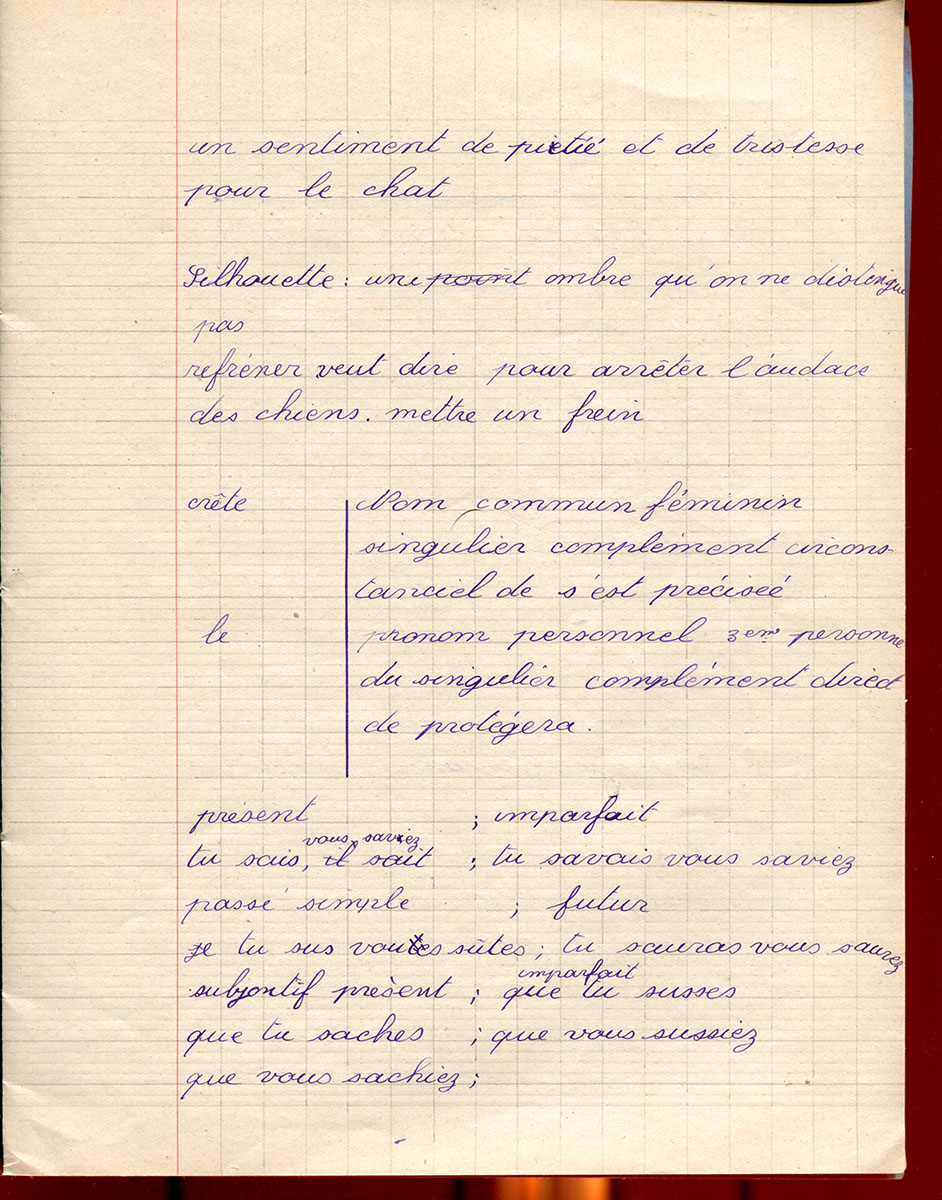 un sentiment de pietié et de tristesse
pour le chat
Silhouette : une point ombre qu'on ne distingue
pas
refréner veut dire pour arrêter l'audace
des chiens. mettre un frein
crête Nom commun féminin
singulier complément circons-
tanciel de s'est préciseé
le pronom personnel 3em personne
du singulier complément direct
de protégera.
présent ; imparfait
vous saviez
tu sais, il sait ; tu savais vous saviez
passé simple ; futur
je tu sus vous sûtes ; tu sauras vous saurez
imparfait
subjontif présent ; que tu susses
que tu saches ; que vous sussiez
que vous sachiez ;